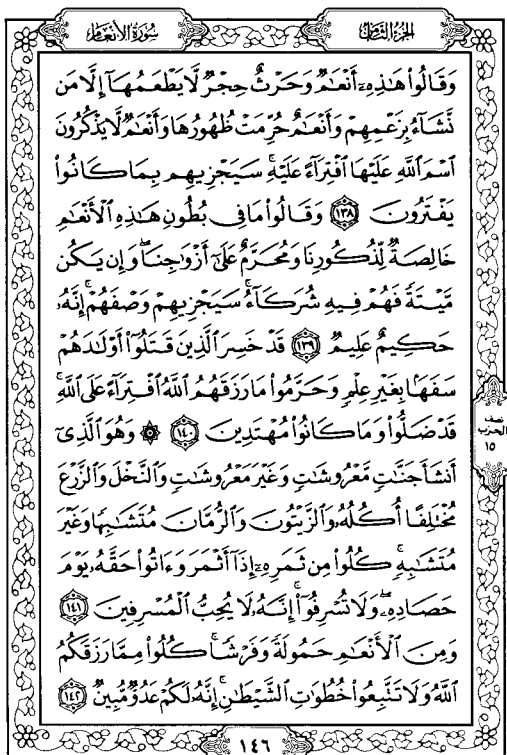 سُورَةُ الأَنْعَامِ
الجُزْءُ الثَّامِنُ
وَقَالُوا۟ هَـٰذِهِۦٓ أَنْعَـٰمٌ وَحَرْثٌ حِجْرٌ لَّا يَطْعَمُهَآ إِلَّا مَن
نَّشَآءُ بِزَعْمِهِمْ وَأَنْعَـٰمٌ حُرِّمَتْ ظُهُورُهَا وَأَنْعَـٰمٌ لَّا يَذْكُرُونَ
ٱسْمَ ٱللَّهِ عَلَيْهَا ٱفْتِرَآءً عَلَيْهِ ۚ سَيَجْزِيهِم بِمَا كَانُوا۟
يَفْتَرُونَ ﴿١٣٨﴾ وَقَالُوا۟ مَا فِى بُطُونِ هَـٰذِهِ ٱلْأَنْعَـٰمِ
خَالِصَةٌ لِّذُكُورِنَا وَمُحَرَّمٌ عَلَىٰٓ أَزْوَٰجِنَا ۖ وَإِن يَكُن
مَّيْتَةً فَهُمْ فِيهِ شُرَكَآءُ ۚ سَيَجْزِيهِمْ وَصْفَهُمْ ۚ إِنَّهُۥ
حَكِيمٌ عَلِيمٌ ﴿١٣٩﴾ قَدْ خَسِرَ ٱلَّذِينَ قَتَلُوٓا۟ أَوْلَـٰدَهُمْ
سَفَهًۢا بِغَيْرِ عِلْمٍ وَحَرَّمُوا۟ مَا رَزَقَهُمُ ٱللَّهُ ٱفْتِرَآءً عَلَى ٱللَّهِ ۚ
قَدْ ضَلُّوا۟ وَمَا كَانُوا۟ مُهْتَدِينَ ﴿١٤٠﴾ ۞ وَهُوَ ٱلَّذِىٓ
أَنشَأَ جَنَّـٰتٍ مَّعْرُوشَـٰتٍ وَغَيْرَ مَعْرُوشَـٰتٍ وَٱلنَّخْلَ وَٱلزَّرْعَ
مُخْتَلِفًا أُكُلُهُۥ وَٱلزَّيْتُونَ وَٱلرُّمَّانَ مُتَشَـٰبِهًا وَغَيْرَ
مُتَشَـٰبِهٍ ۚ كُلُوا۟ مِن ثَمَرِهِۦٓ إِذَآ أَثْمَرَ وَءَاتُوا۟ حَقَّهُۥ يَوْمَ
حَصَادِهِۦ ۖ وَلَا تُسْرِفُوٓا۟ ۚ إِنَّهُۥ لَا يُحِبُّ ٱلْمُسْرِفِينَ ﴿١٤١﴾
وَمِنَ ٱلْأَنْعَـٰمِ حَمُولَةً وَفَرْشًا ۚ كُلُوا۟ مِمَّا رَزَقَكُمُ
ٱللَّهُ وَلَا تَتَّبِعُوا۟ خُطُوَٰتِ ٱلشَّيْطَـٰنِ ۚ إِنَّهُۥ لَكُمْ عَدُوٌّ مُّبِينٌ ﴿١٤٢﴾
نصف
الحزب
١٥
١٤٦